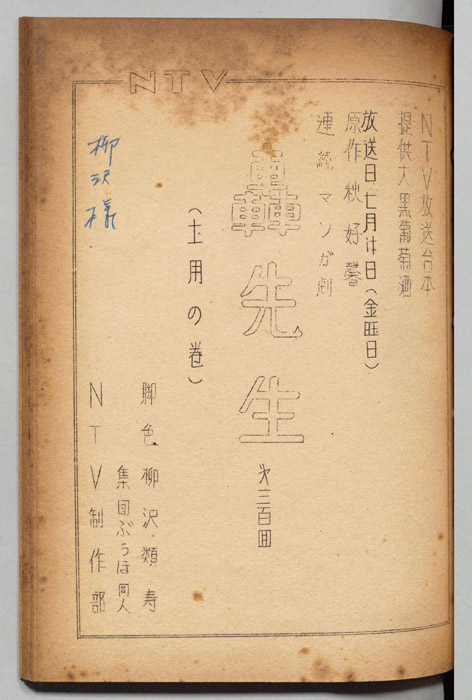 NTV
NTV放送台本
提供大黒葡萄酒
放送日七月廿日(金曜日)
原作秋好馨
連続マンガ劇
轟先生
㐧三百回
(土用の巻)
脚色柳沢類寿
集団ぶうほ同人
NTV制作部
柳沢様